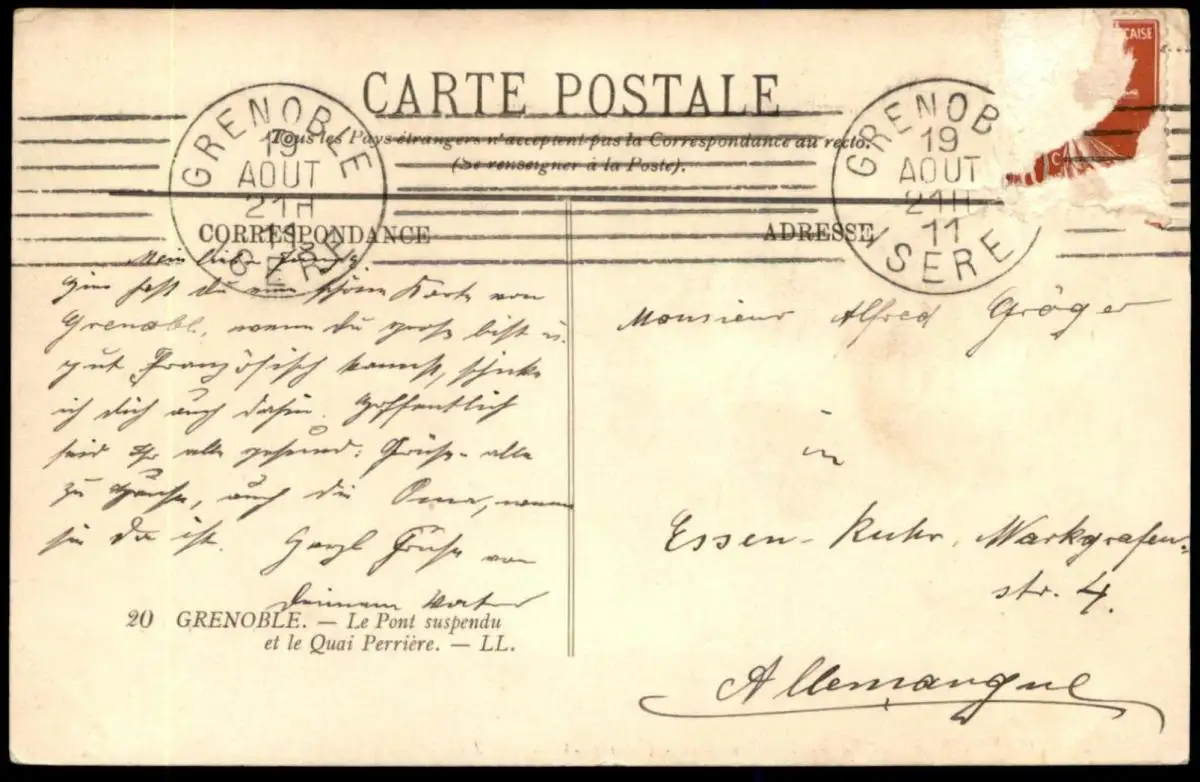 CARTE POSTALE
Tous les Pays étrangers n'acceptent pas la Correspondance au recto.
(Se renseigner à la Poste).
GRENOBLE
19
AOUT
21H
11
ISERE
GRENOB
19
AOUT
21H
11
ISERE
CAISE
CORRESPONDANCE
Mein lieber
Hier hast du eine schöne Karte von
Grenobl., wenn du groß bist u.
gut Französisch kannst, schicke
ich dich auch dahin. Hoffentlich
seid Ihr alle gesund. Grüße alle
zu Hause, auch die Oma, wenn
sie da ist. Herzl Grüße von
Deinem Vater
20 GRENOBLE. — Le Pont suspendu
et le Quai Perrière. — LL.
ADRESSE
Monsieur Alfred Gröger
in
Essen-Ruhr, Markgrafen-
str. 4.
Allemangne